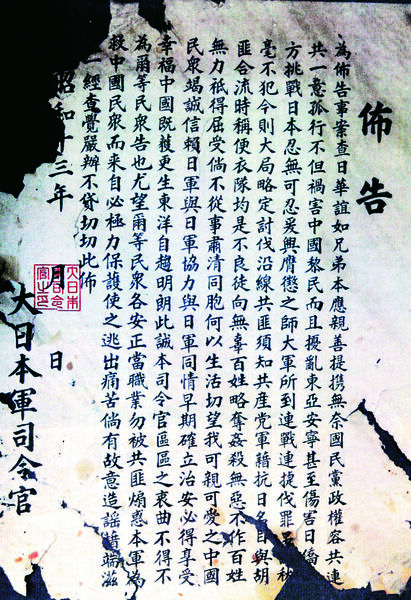 佈告
為佈告事案查日華誼如兄弟本應親善提携無奈國民黨政權容共連
共一意孤行不但禍害中國黎民而且擾亂東亞安寧甚至傷害日僑
方挑戰日本忍無可忍爰興膺懲之師大軍所到連戰連捷伐罪 秋
毫不犯今則大局略定討伐沿線共匪須知共産党軍藉抗日名目與胡
匪合流時稱便衣隊均是不良徒向無辜百姓略奪姦殺無惡不作百姓
無力祗得屈受倘不從事肅清同胞何以生活切望我可親可愛之中國
民衆竭誠信賴日軍與日軍協力與日軍同情早期確立治安必得享受
幸福中國既被更生東洋自趨明朗此誠本司令官區區之衷曲不得不
為爾等民衆告也尤望爾等民衆各安正當職業勿被共匪煽惑本軍為
救中國民衆而来自必極力保護使之逃出痛苦倘有故意造謠藉端滋
一經查覺嚴辦不貸切切此佈
昭和十三年 月 日
大日本軍司令官